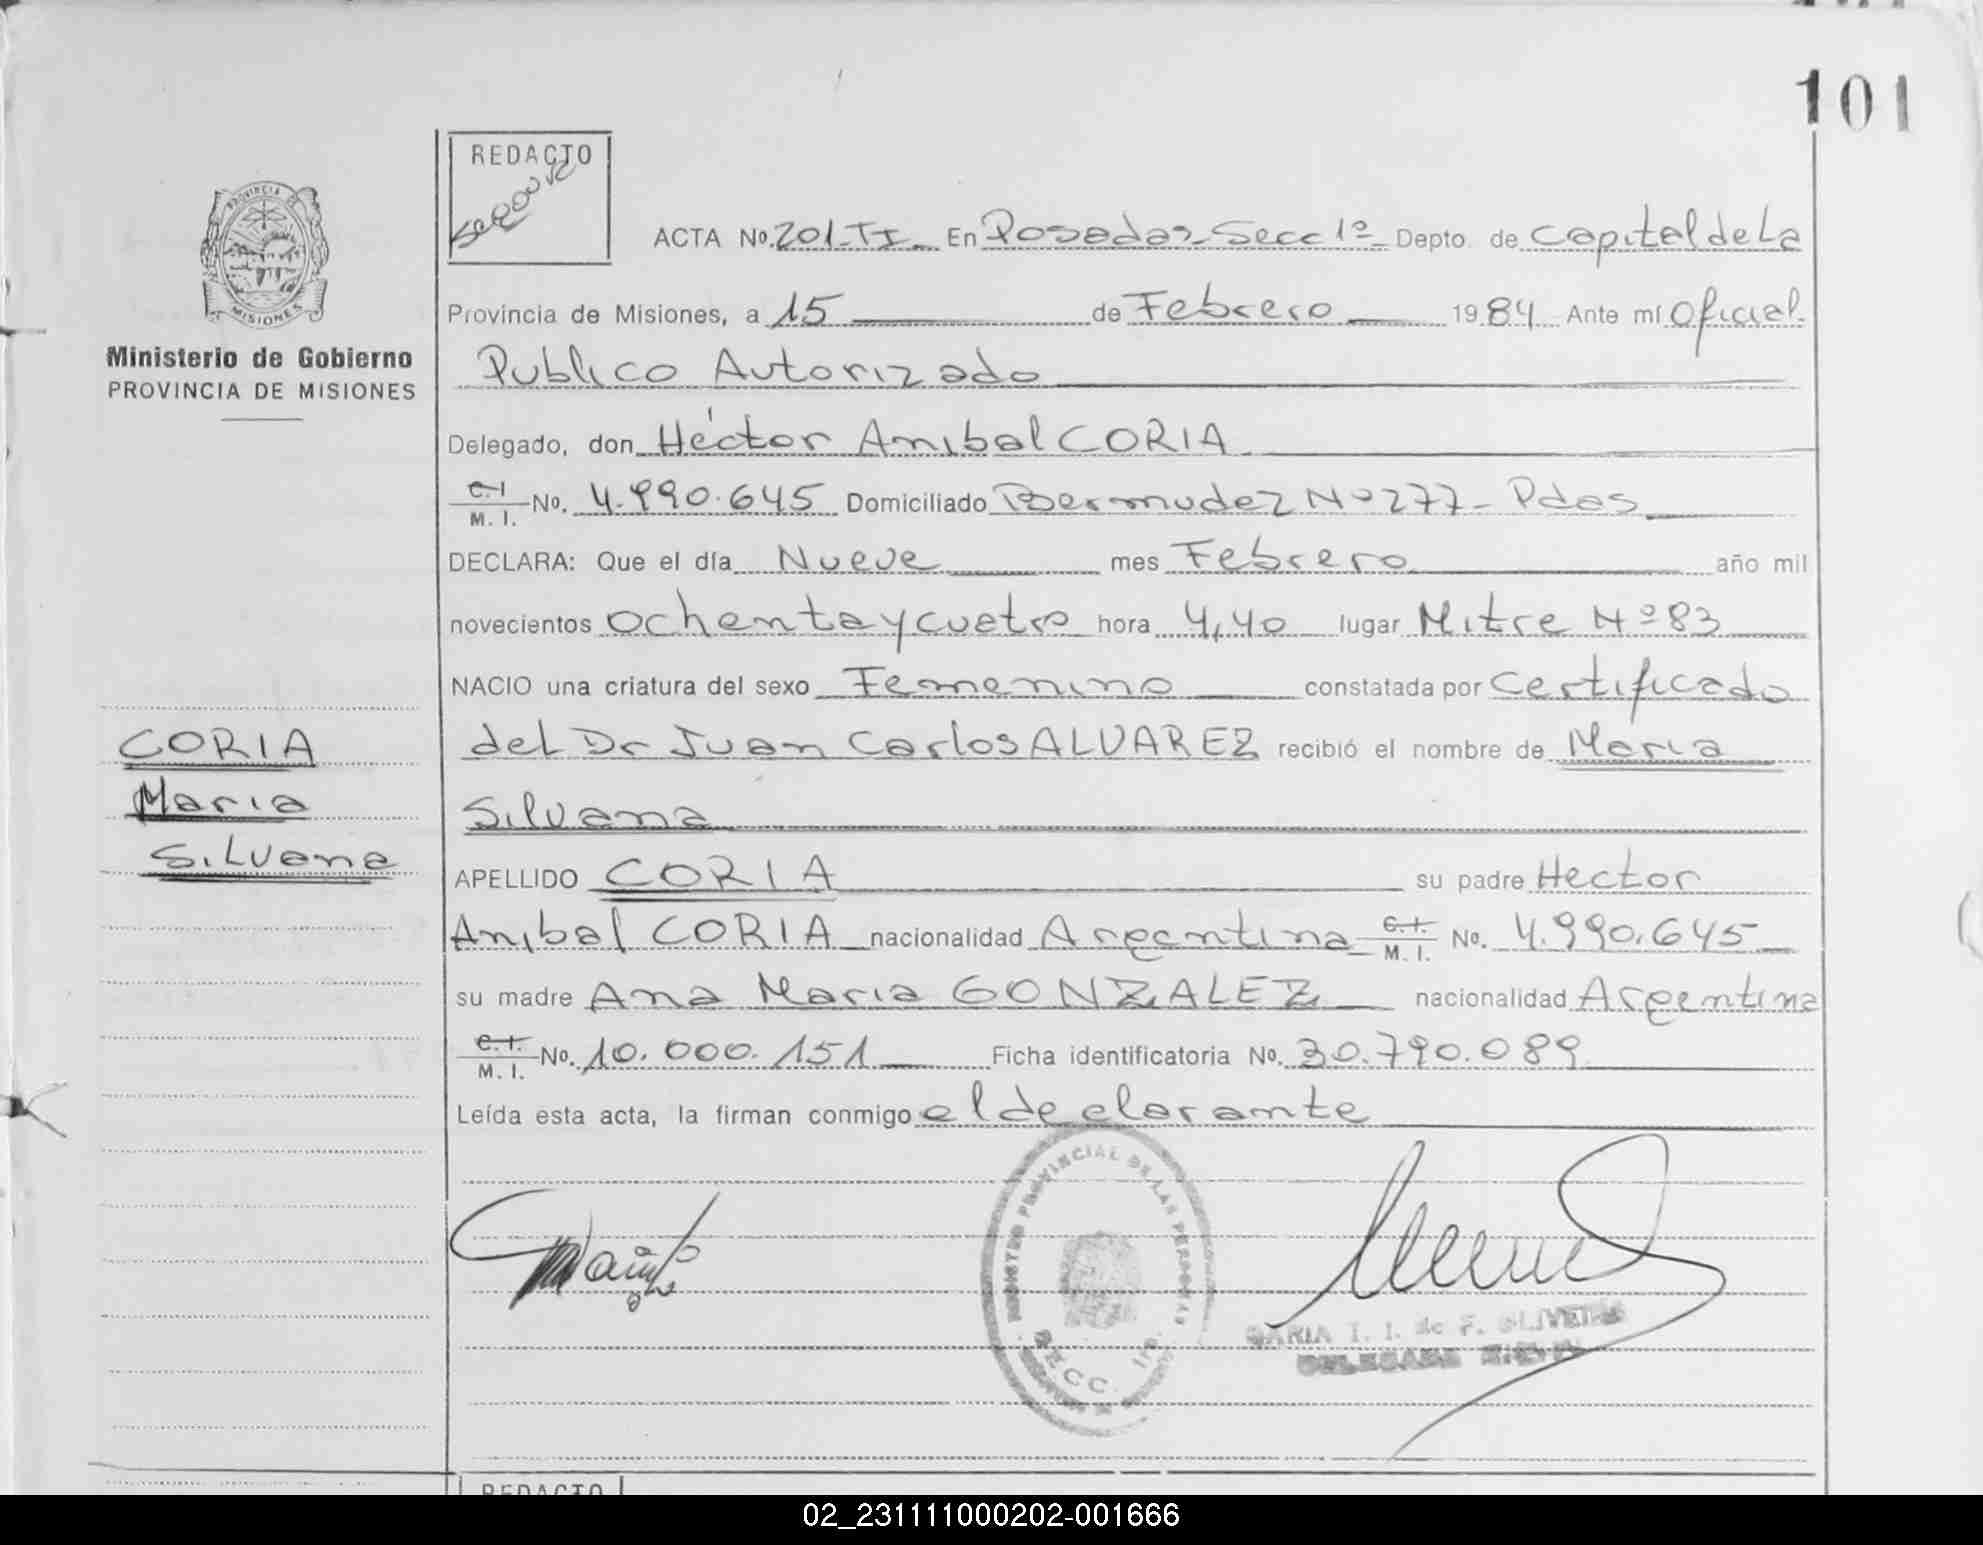 101
REDACTO
PROVINCIA DE
MISIONES
ACTA No. 201-TI- En Posadas-Secc 1º Depto. de Capital de La
Provincia de Misiones, a 15 de Febrero 1984 Ante mí Oficial
Ministerio de Gobierno
PROVINCIA DE MISIONES
Publico Autorizado
Delegado, don Héctor Anibal CORIA
C.I M. I. No. 4.990.645 Domiciliado Bermudez Nº 277- Pdas
DECLARA: Que el día Nueve mes Febrero año mil
novecientos ochenta y cuatro hora 4,40 lugar Mitre Nº 83
NACIO una criatura del sexo Femenino constatada por Certificado
del Dr Juan Carlos ALVAREZ recibió el nombre de Maria
Silvana
CORIA
Maria
Silvana
APELLIDO CORIA su padre Hector
Anibal CORIA nacionalidad Argentina C.I. M. I. No. 4.990.645
su madre Ana Maria GONZALEZ nacionalidad Argentina
C.I. M. I. No. 10.000.151 Ficha identificatoria No. 30.790.089
Leída esta acta, la firman conmigo el declarante
REGISTRO PROVINCIAL DE LAS PERSONAS
SECC. 1ra.
MARIA I. I. de F. OLIVEIRA
REDACTO
02_231111000202-001666